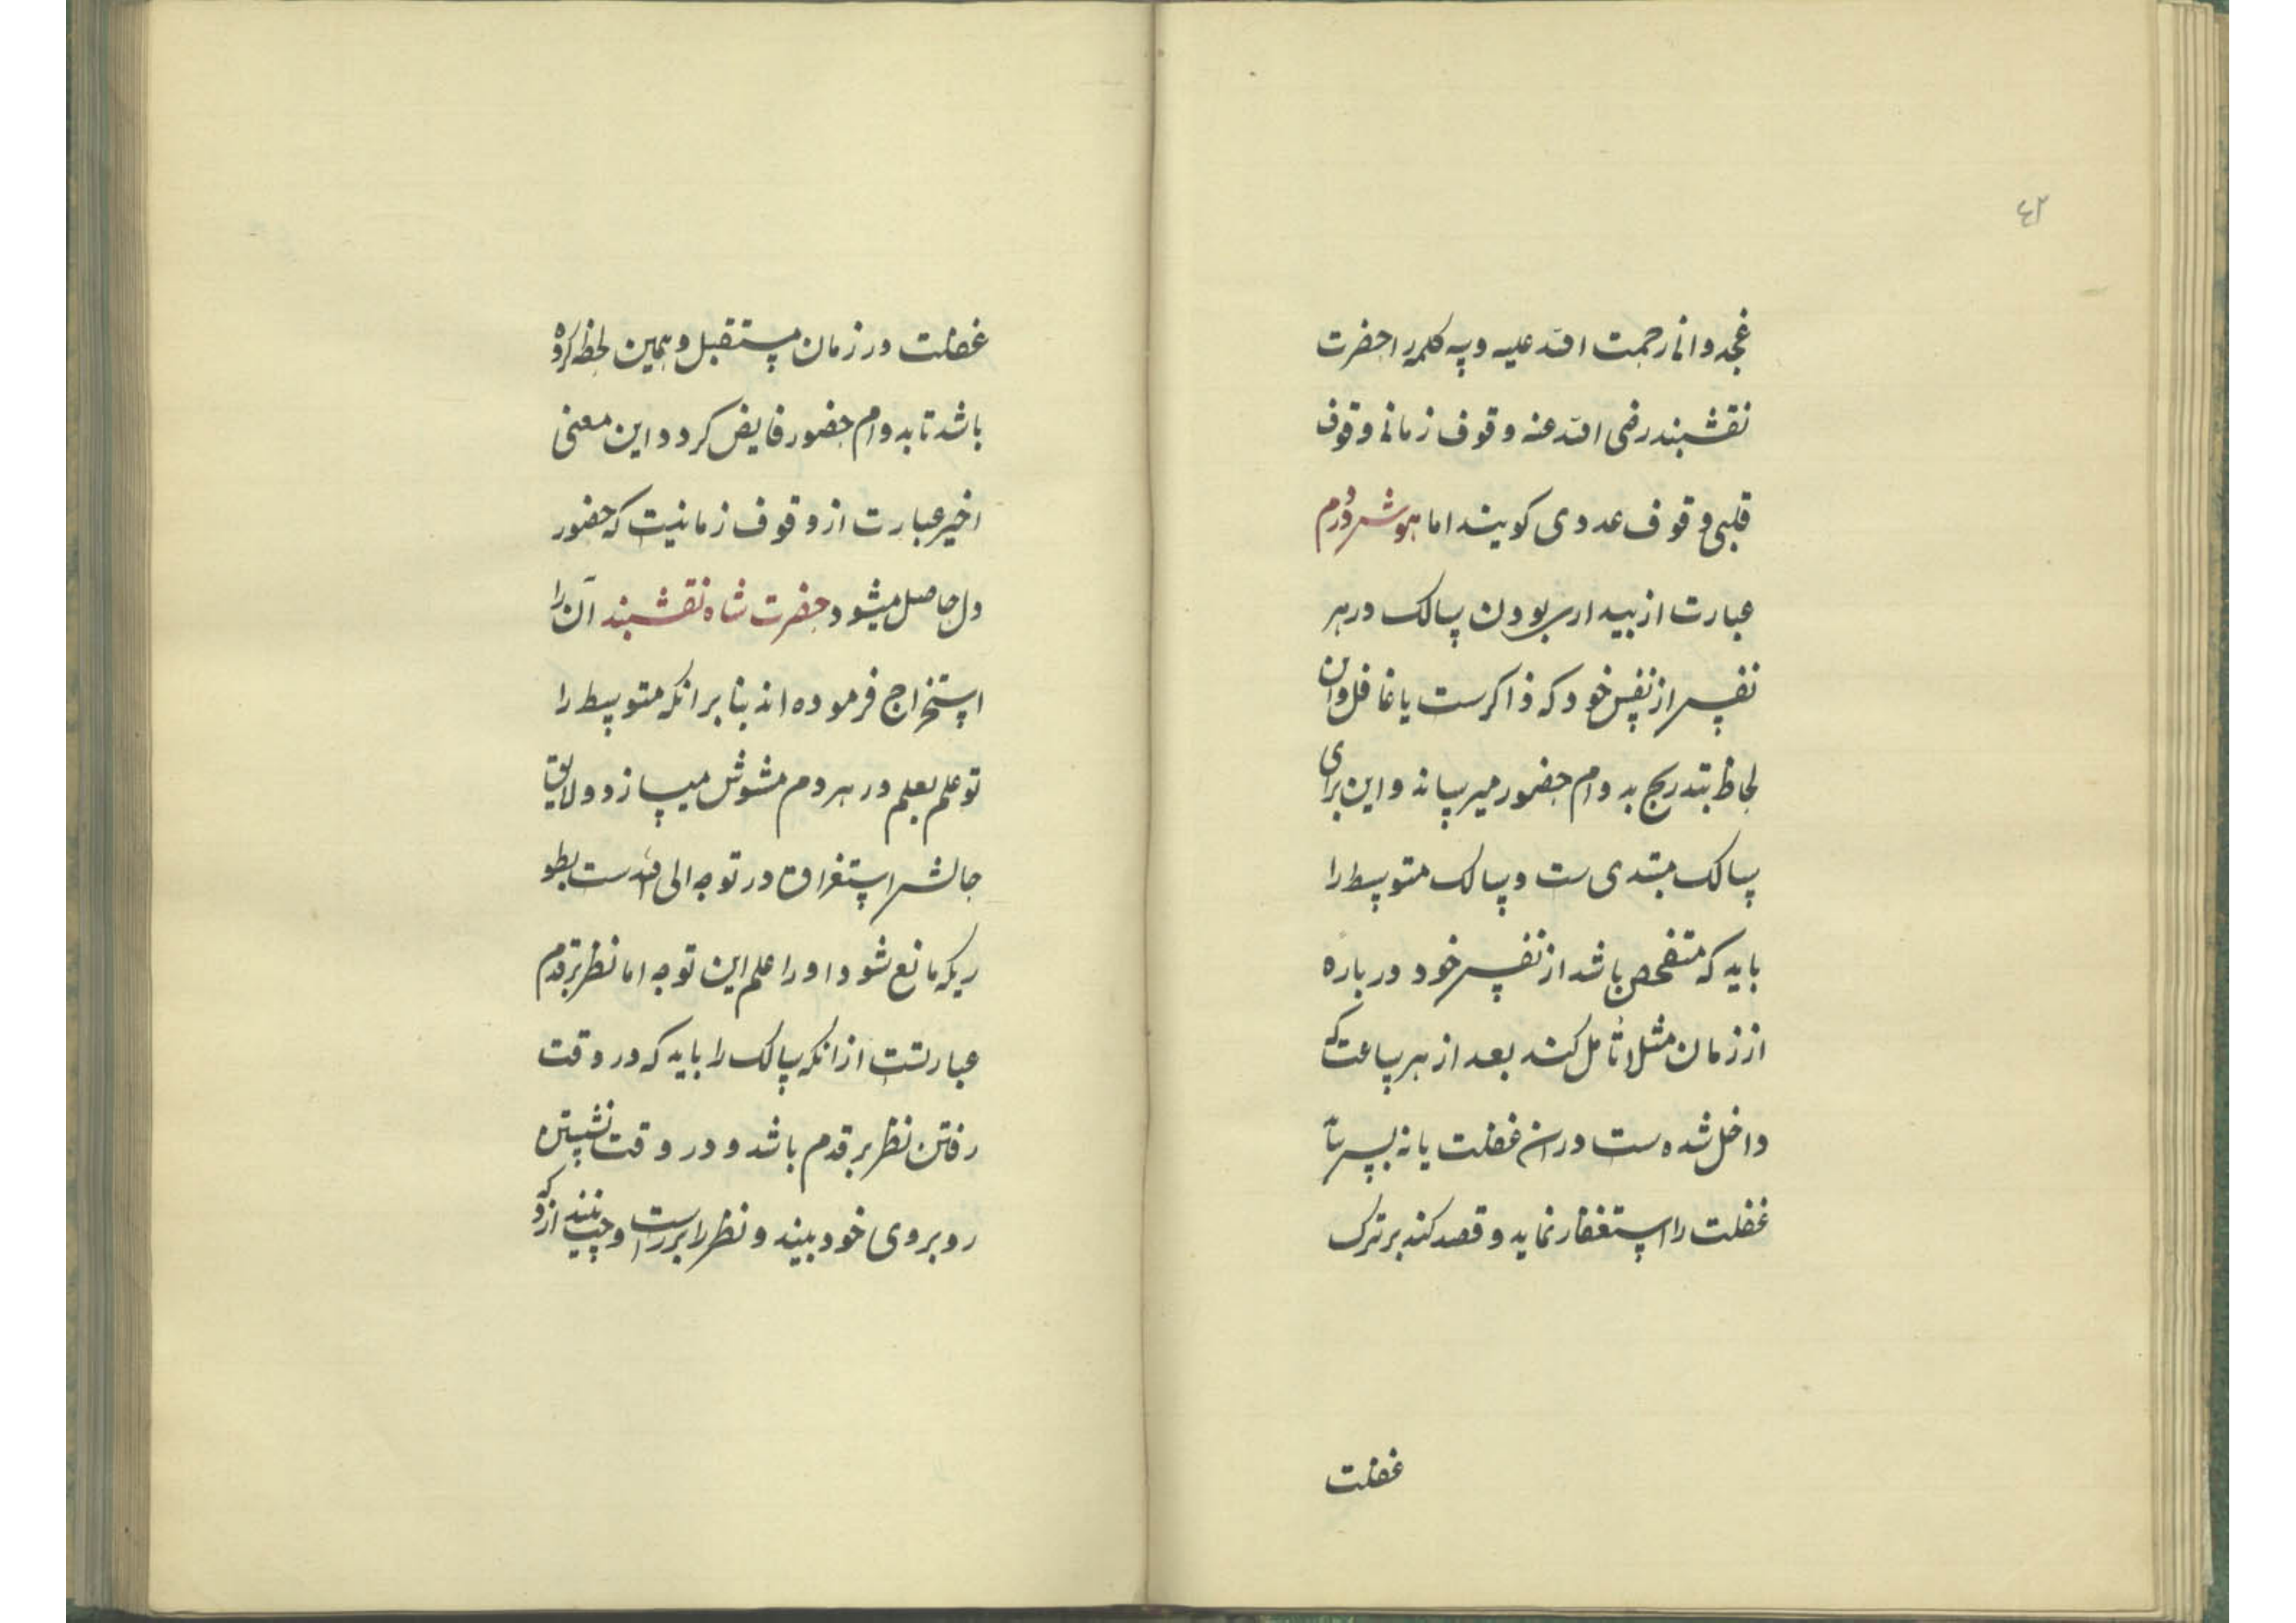 ٤٢
غجدوانی رحمت الله علیه و سه کلمه را حضرت
نقشبند رضی الله عنه وقوف زمانی وقوف
قلبی وقوف عددی کویند اما هوش در دم
عبارت از بیداری بودن سالک در هر
نفس از نفس خود که ذاکرست یا غافل و این
لحاظ بتدریج بدوام حضور میرساند و این برای
سالک مبتدی ست و سالک متوسط را
باید که متفحص باشد از نفس خود در باره
از زمان مثلا تأمل کند بعد از هر ساعت که
داخل شده ست دران غفلت یا نه بس
غفلت را استغفار نماید و قصد کند بر ترک
غفلت
غفلت در زمان مستقبل و همین لحظ کرده
باشد تا بدوام حضور فایض کردد و این معنی
اخیر عبارت از وقوف زمانیت که حضور
دل حاصل میشود حضرت شاه نقشبند آن را
استخراج فرموده اند بنا برانکه متوسط را
تو علم بعلم در هر دم مشوش میسازد و لایق
حالش استغراق در توجه الی الله ست بطو
ریکه مانع شود او را علم این توجه اما نظر بر قدم
عبارتست ازانکه سالک را باید که در وقت
رفتن نظر بر قدم باشد و در وقت نشستن
روبروی خود بیند و نظر را بر راست و چپ نبیند